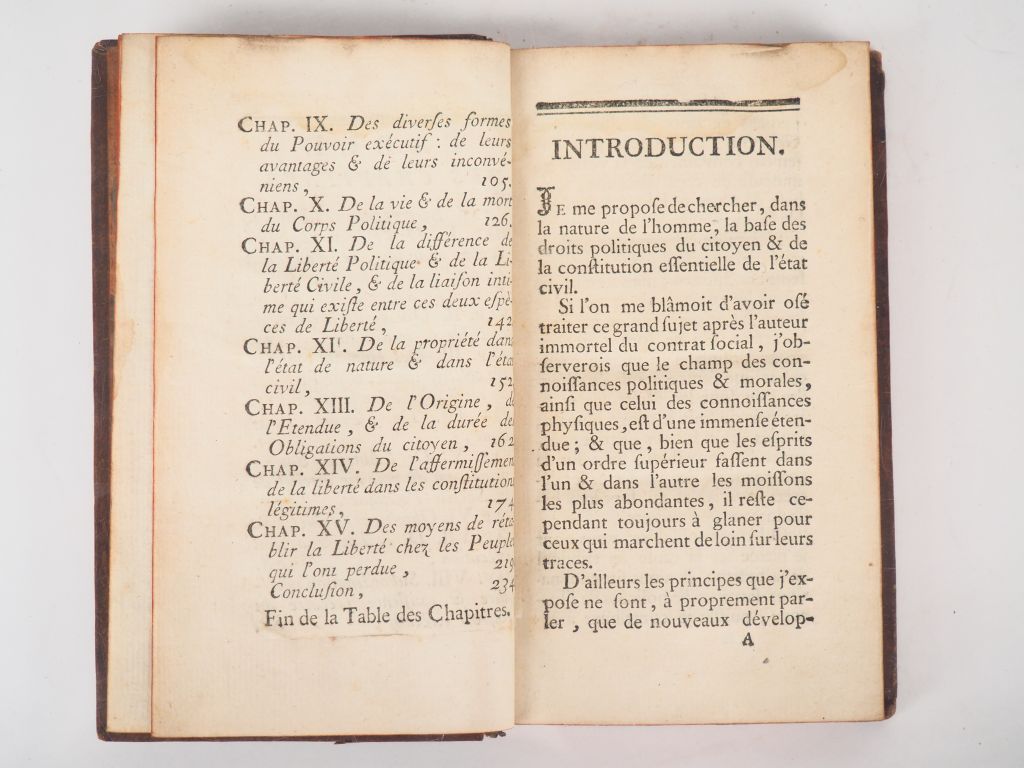 CHAP. IX. Des diverſes formes
du Pouvoir exécutif : de leurs
avantages & de leurs inconvé-
niens, 105.
CHAP. X. De la vie & de la mort
du Corps Politique, 126.
CHAP. XI. De la différence de
la Liberté Politique & de la Li-
berté Civile, & de la liaiſon inti-
me qui exiſte entre ces deux eſpè-
ces de Liberté, 142
CHAP. XII. De la propriété dans
l'état de nature & dans l'état
civil, 152
CHAP. XIII. De l'Origine, de
l'Etendue, & de la durée des
Obligations du citoyen, 162
CHAP. XIV. De l'affermiſſement
de la liberté dans les conſtitutions
légitimes, 174
CHAP. XV. Des moyens de réta-
blir la Liberté chez les Peuples
qui l'ont perdue, 219
Concluſion, 234
Fin de la Table des Chapitres.
INTRODUCTION.
JE me propoſe de chercher, dans
la nature de l'homme, la baſe des
droits politiques du citoyen & de
la conſtitution eſſentielle de l'état
civil.
Si l'on me blâmoit d'avoir oſé
traiter ce grand ſujet après l'auteur
immortel du contrat ſocial, j'ob-
ſerverois que le champ des con-
noiſſances politiques & morales,
ainſi que celui des connoiſſances
phyſiques, eſt d'une immenſe éten-
due; & que, bien que les eſprits
d'un ordre ſupérieur faſſent dans
l'un & dans l'autre les moiſſons
les plus abondantes, il reſte ce-
pendant toujours à glaner pour
ceux qui marchent de loin ſur leurs
traces.
D'ailleurs les principes que j'ex-
poſe ne ſont, à proprement par-
ler, que de nouveaux dévelop-
A